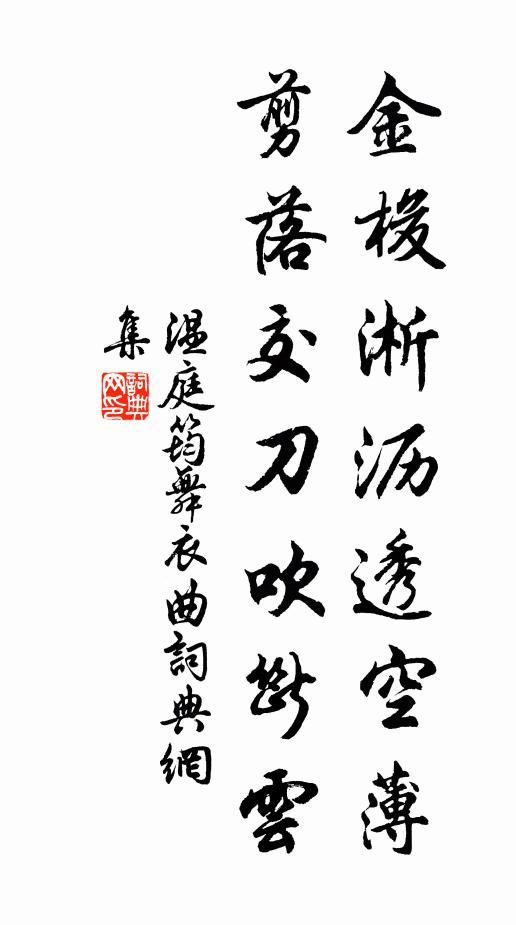 金梭淅沥透空薄
剪落交刀吹斷雲
温庭筠舞衣曲詞典網
集
詞典
网印